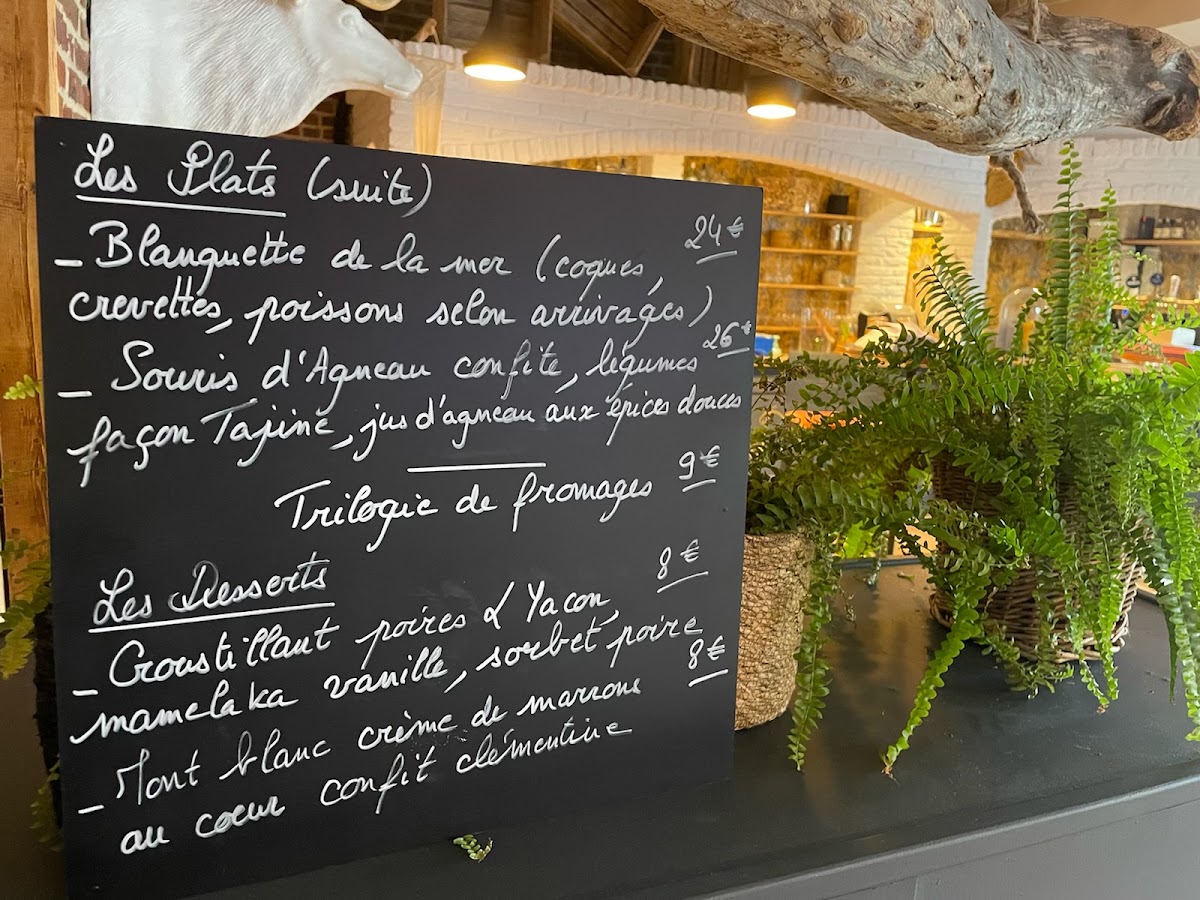 Les Plats (suite)
- Blanquette de la mer (coques, 24€
crevettes, poissons selon arrivages)
- Souris d'Agneau confite, légumes 26€
façon Tajine, jus d'agneau aux épices douces
Trilogie de fromages 9€
Les Desserts
- Croustillant poires & Yacon, 8€
mamelaka vanille, sorbet poire
- Mont blanc crème de marrons 8€
au coeur confit clémentine